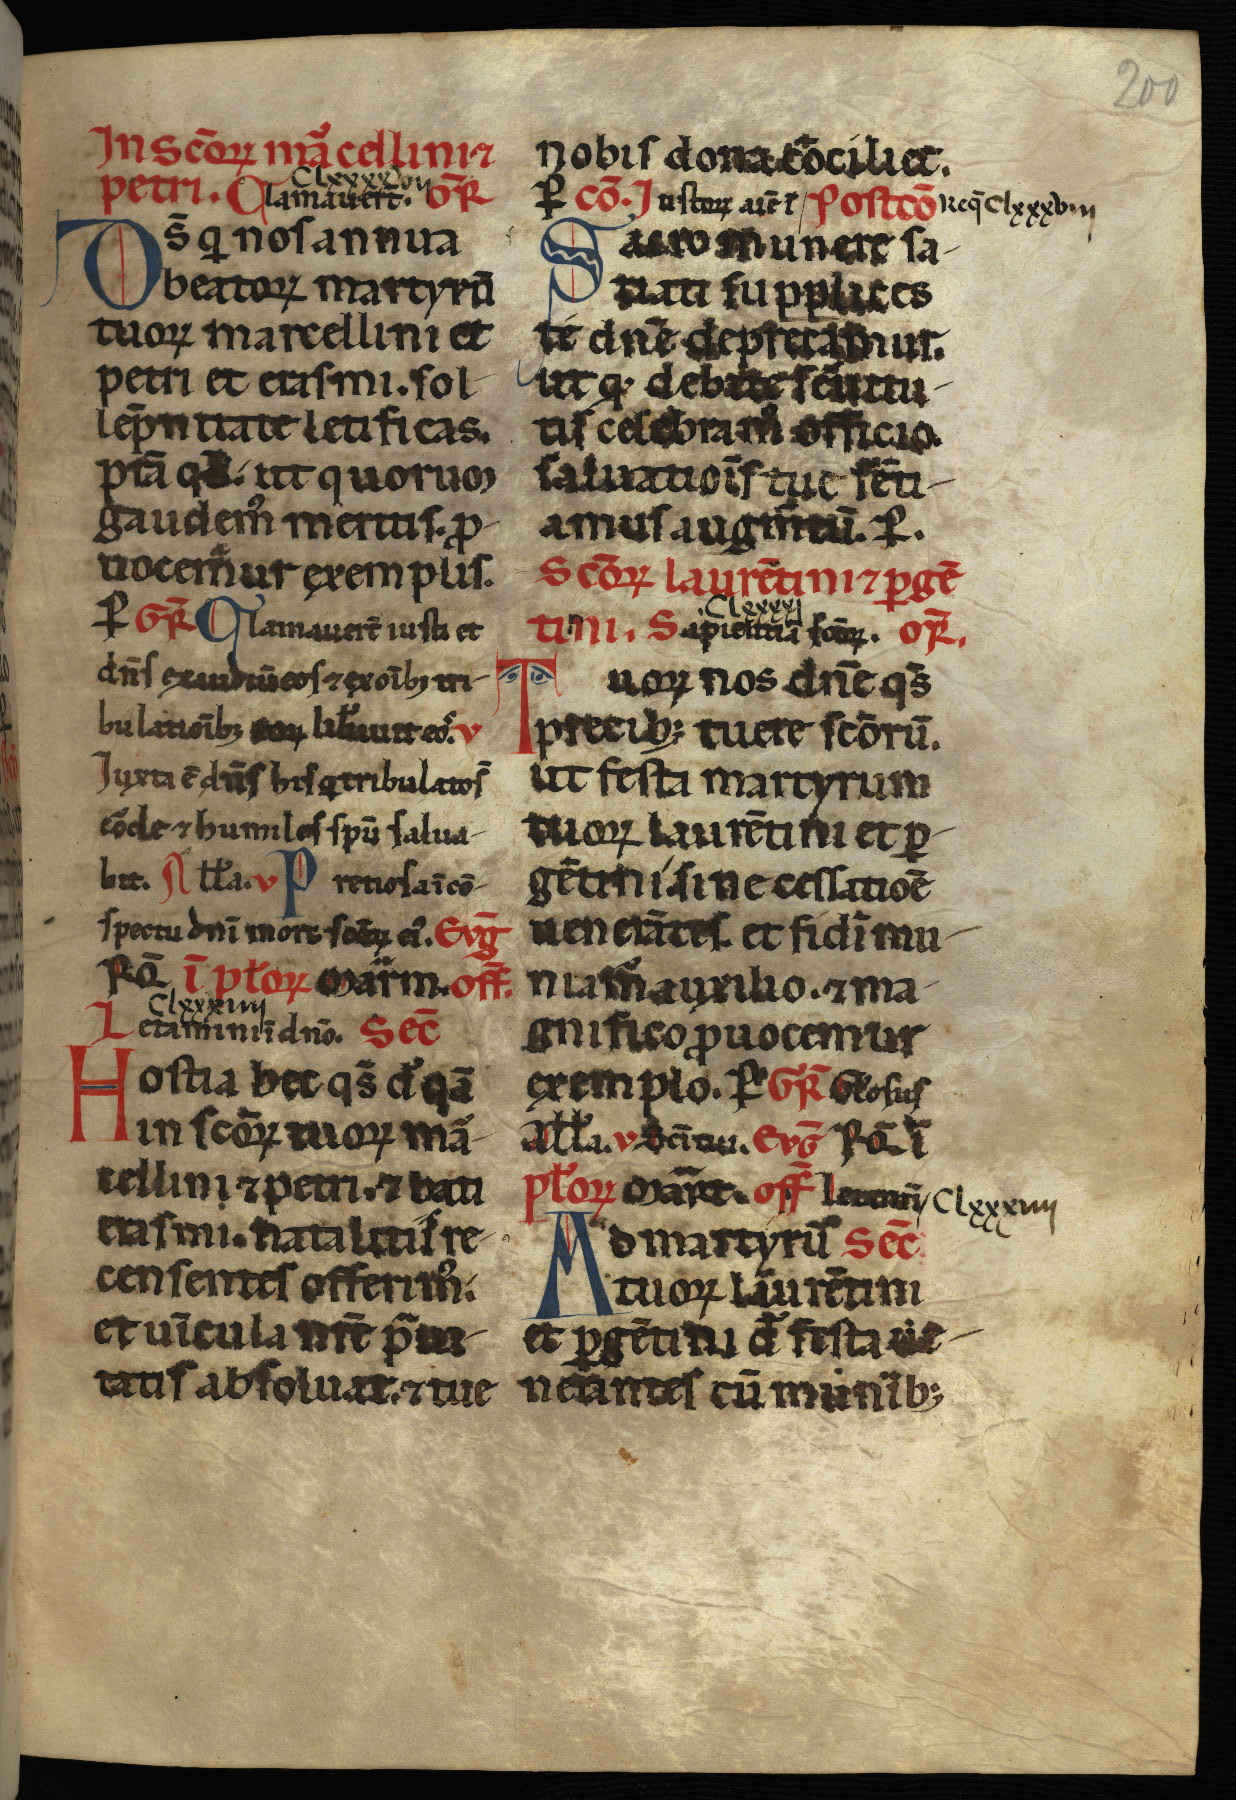 200
In scõꝝ mᷓcellini ⁊
petri. Clamauert̄. OR̄
Clxxxxvıı
D s̄ q̇ nos annua
beatoꝝ martyrū
tuoꝝ marcellini et
petri et erasmi. sol-
lēpnitate letificas.
p̄sta qs̄. ut quorum
gaudemꝰ meritis. ꝓ-
uocemur exemplis.
P̵ GR̄ Clamauert̄ iusti et
dñs exaudiuit eos ⁊ ex oı̄bꝫ tri-
bulatioı̄bꝫ eoꝝ libauit eos. v
Iuxta ē dñs his q tribulato s̄
corde ⁊ humiles spū salua-
bit. All'a. v Pretiosa ı̄ cō-
spectu dnı̄ mors scōꝝ eiꝰ. Evḡ
Rq̄ ı̄ pl'oꝝ marm̄. off̄.
Clxxxıııı
Letamini ı̄ dño. Sec̄
Hostia hec qs̄ d' quā
in scōꝝ tuoꝝ mᷓ-
cellini ⁊ petri. ⁊ bati
erasmi. natalitiis re-
censentes offerimꝰ.
et uı̄cula nr̄e p̄ui-
tatis absoluat. ⁊ tue
nobis dona cōciliet.
P̵ cō. Iustoꝝ aı̄e ı̄ Postcō Reqͥ Clxxxvııı
Sacro munere sa-
tiati supplices
te dñe deprecamur.
ut q̇ debite seruitu-
tis celebramꝰ officio.
saluatioı̄s tue sēti-
amus augm̄tū. P̵.
Scōꝝ laurētini ⁊ ꝑgē
Clxxxxı
tini. Sapientiā scōꝝ. OR̄.
Tuoꝝ nos dñe qs̄
precibꝫ tuere scōrū.
ut festa martyrum
tuoꝝ laurētini et ꝑ-
gētini. sine cessatiōe
uenerātes. et fidı̄ mu-
niamᷓ auxilio. ⁊ ma-
gnifico ꝓuocemur
exemplo. P̵ GR̄ Gl'osus
All'a. v Scı̄ tui. Evḡ Rq̄ ı̄
pl'oꝝ mart̄. off̄ Letamı̄ Clxxxıııı
Ad martyrū Sec̄
tuoꝝ laurētini
et ꝑgētini d' festa ue-
nerantes cū munı̄bꝫ